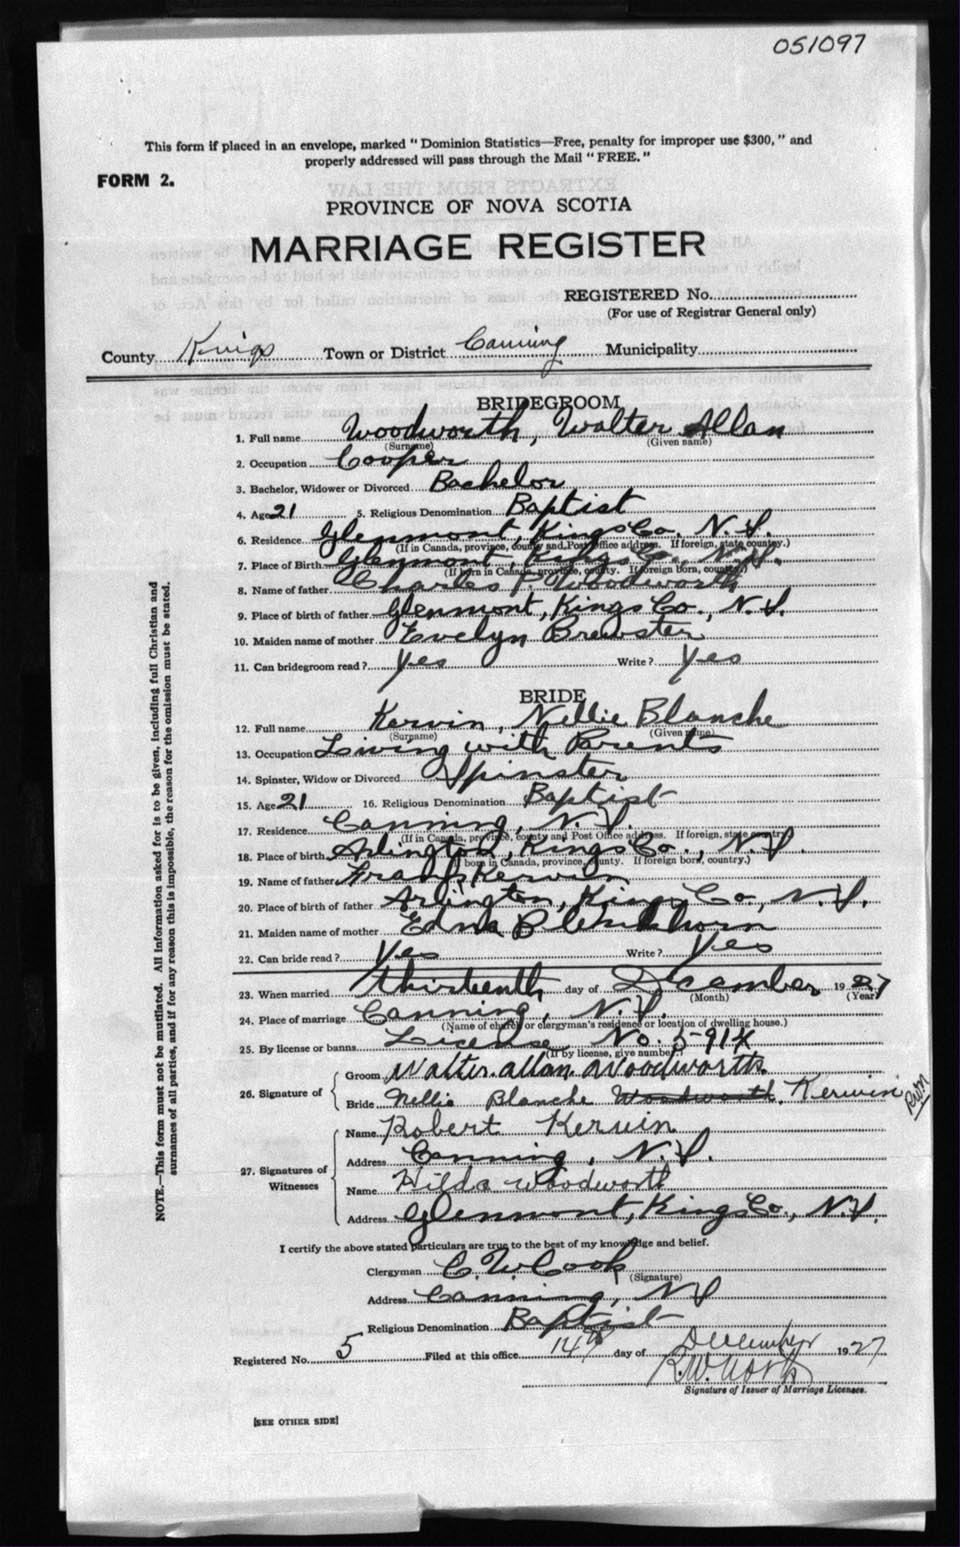 051097
This form if placed in an envelope, marked "Dominion Statistics—Free, penalty for improper use $300," and
properly addressed will pass through the Mail "FREE."
FORM 2.
PROVINCE OF NOVA SCOTIA
MARRIAGE REGISTER
REGISTERED No.
(For use of Registrar General only)
County Kings Town or District Canning Municipality
BRIDEGROOM
1. Full name Woodworth, Walter Allan
(Surname) (Given name)
2. Occupation Cooper
3. Bachelor, Widower or Divorced Bachelor
4. Age 21 5. Religious Denomination Baptist
6. Residence Glenmont, Kings Co. N.S.
(If in Canada, province, county and Post Office address. If foreign, state country.)
7. Place of Birth Glenmont, Kings Co., N.S.
(If born in Canada, province, county. If foreign born, country.)
8. Name of father Charles F. Woodworth
9. Place of birth of father Glenmont, Kings Co., N.S.
10. Maiden name of mother Evelyn Brewster
11. Can bridegroom read? Yes Write? Yes
BRIDE
12. Full name Kervin, Nellie Blanche
(Surname) (Given name)
13. Occupation Living with Parents
14. Spinster, Widow or Divorced Spinster
15. Age 21 16. Religious Denomination Baptist
17. Residence Canning, N.S.
(If in Canada, province, county and Post Office address. If foreign, state country
18. Place of birth Arlington, Kings Co., N.S.
(If born in Canada, province, county. If foreign born, country.)
19. Name of father Kervin
20. Place of birth of father Arlington, Kings Co., N.S.
21. Maiden name of mother Edna
22. Can bride read? Yes Write? Yes
23. When married thirteenth day of December 1927
(Month) (Year)
24. Place of marriage Canning, N.S.
(Name of church or clergyman's residence or location of dwelling house.)
25. By license or banns License No.
(If by license, give number.)
26. Signature of
Groom Walter Allan Woodworth
Bride Nellie Blanche Woodworth Kerwin
27. Signatures of
Witnesses
Name Robert Kerwin
Address Canning, N.S.
Name Hilda Woodworth
Address Glenmont, Kings Co., N.S.
I certify the above stated particulars are true to the best of my knowledge and belief.
Clergyman C. W. Cook
(Signature)
Address Canning, N.S.
Religious Denomination Baptist
Registered No. 5 Filed at this office 14th day of December 1927
R.W. North
Signature of Issuer of Marriage Licenses.
[SEE OTHER SIDE]
NOTE.—This form must not be mutilated. All information asked for is to be given, including full Christian and
surnames of all parties, and if for any reason this is impossible, the reason for the omission must be stated.